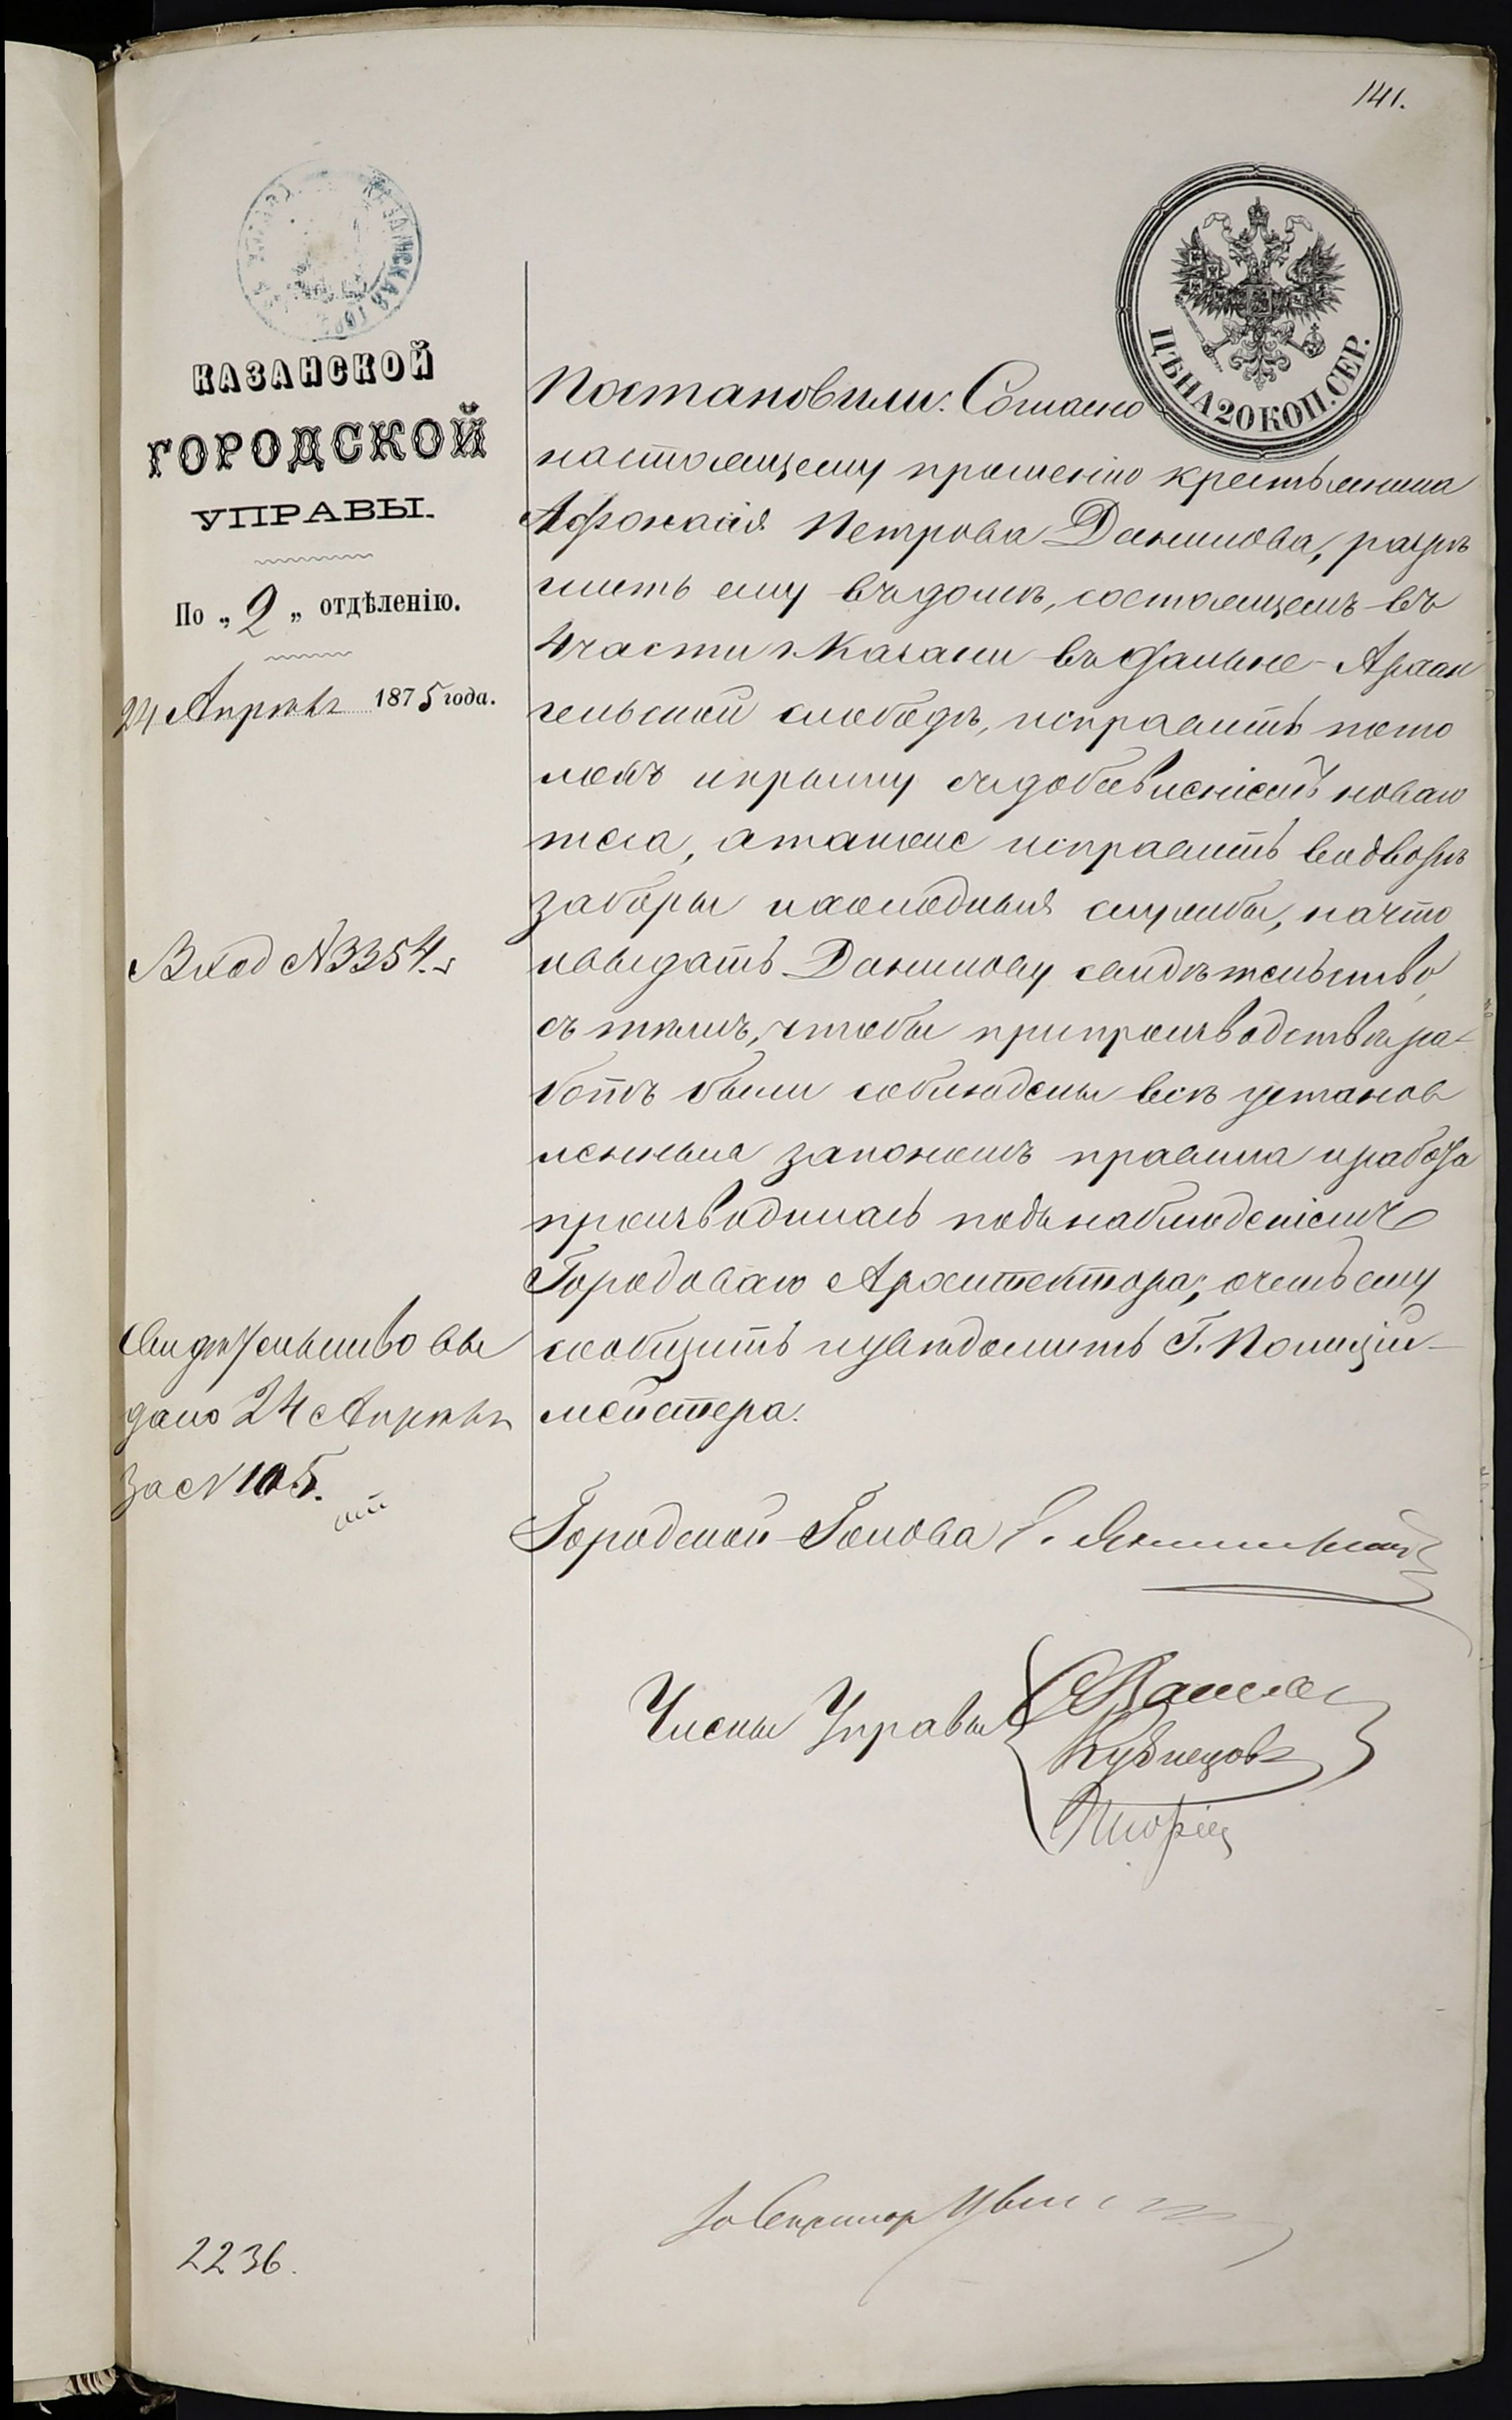 141.
КАЗАНСКОЙ
ГОРОДСКОЙ
УПРАВЫ.
По „2„ отдѣленію.
24 Апрѣля 1875 года.
Вход №3354.
Свидѣтельство вы
дано 24 Апрѣля
за №105.
2236.
ЦѢНА 20 КОП. СЕР.
Постановили: Согласно
настоящему прошенію крестьянина
Афонасія Петрова Данилова, разрѣ
шить ему въ домѣ, состоящемъ въ
4 части г. Казани въ Дальне-Архан
гельской слободѣ, исправить пото
локъ и крышу съ добавленіемъ новаго
теса, а также исправить на дворѣ
заборы и холодныя службы, на что
и выдать Данилову свидѣтельство,
съ тѣмъ, чтобы при производствѣ ра-
ботъ были соблюдены всѣ установ
ленныя закономъ правила и работа
производилась подъ наблюденіемъ
Городоваго Архитектора; о чемъ ему
сообщить и увѣдомить Г. Полиціи-
мейстера.
Городской Голова Э. Янишевскій
Члены Управы
Кузнецовъ
За Секретар